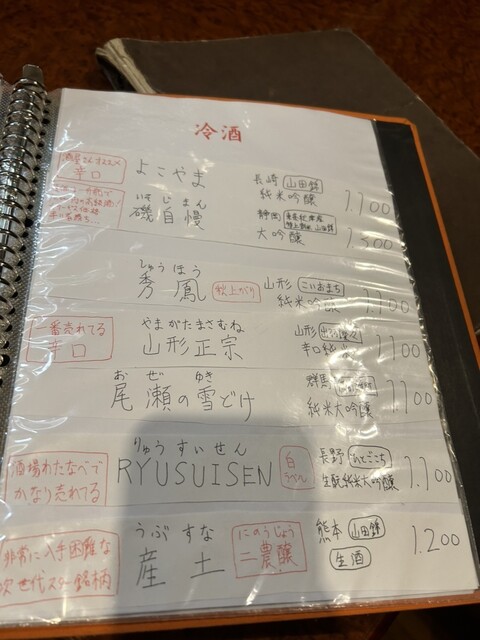 冷酒
辛口
よこやま
長崎 山田錦
純米吟醸
1.100
いそじまん
磯自慢
静岡
大吟醸
1.300
しゅうほう
秀鳳
秋上がり
山形 こいおまち
純米吟醸
1.100
一番売れてる
辛口
やまがたまさむね
山形正宗
山形
辛口純
1.100
おぜ ゆき
尾瀬の雪どけ
群馬
純米大吟醸
1.100
酒場わたなべで
かなり売れてる
りゅうすいせん
RYUSUISEN
白
らべる
長野 ひとごこち
生酛純米大吟醸
1.100
非常に入手困難な
次世代スター銘柄
うぶすな
産土
にのうじょう
二農醸
熊本 山田錦
生酒
1.200